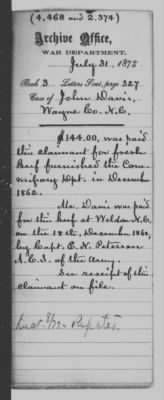 (4.468 and 2.374)
Archive Office,
WAR DEPARTMENT,
July 31, 1872
Book 3 Letters Sent, page 327
Case of John Davis,
Wayne Co. N.C.
$144.00, was paid
the claimant for fresh
Beef furnished the Com-
missary Dpt. in December
1862.
Mr. Davis was paid
for this beef at Weldon N.C.
on the 18th, December 1862,
by Capt. E. N. Peterson
A.C.S. of the Army.
See receipt of the
claimant on file.